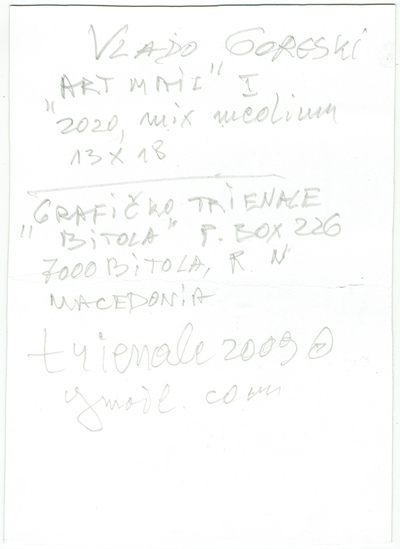 VLADO GORESKI
"ART MAIL" I
"2020, mix medium
13 X 18
"GRAFIČKO TRIENALE
"BITOLA" P. BOX 226
7000 BITOLA, R. N
MACEDONIA
trienale2009@
gmail.com